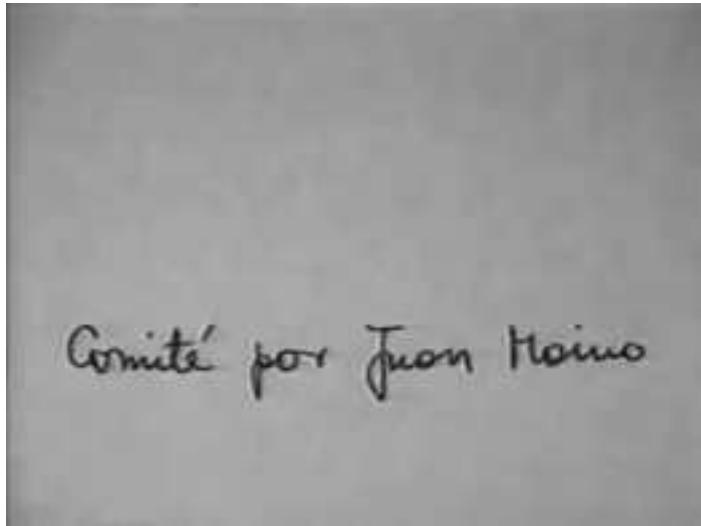 Comité por Juan Maino